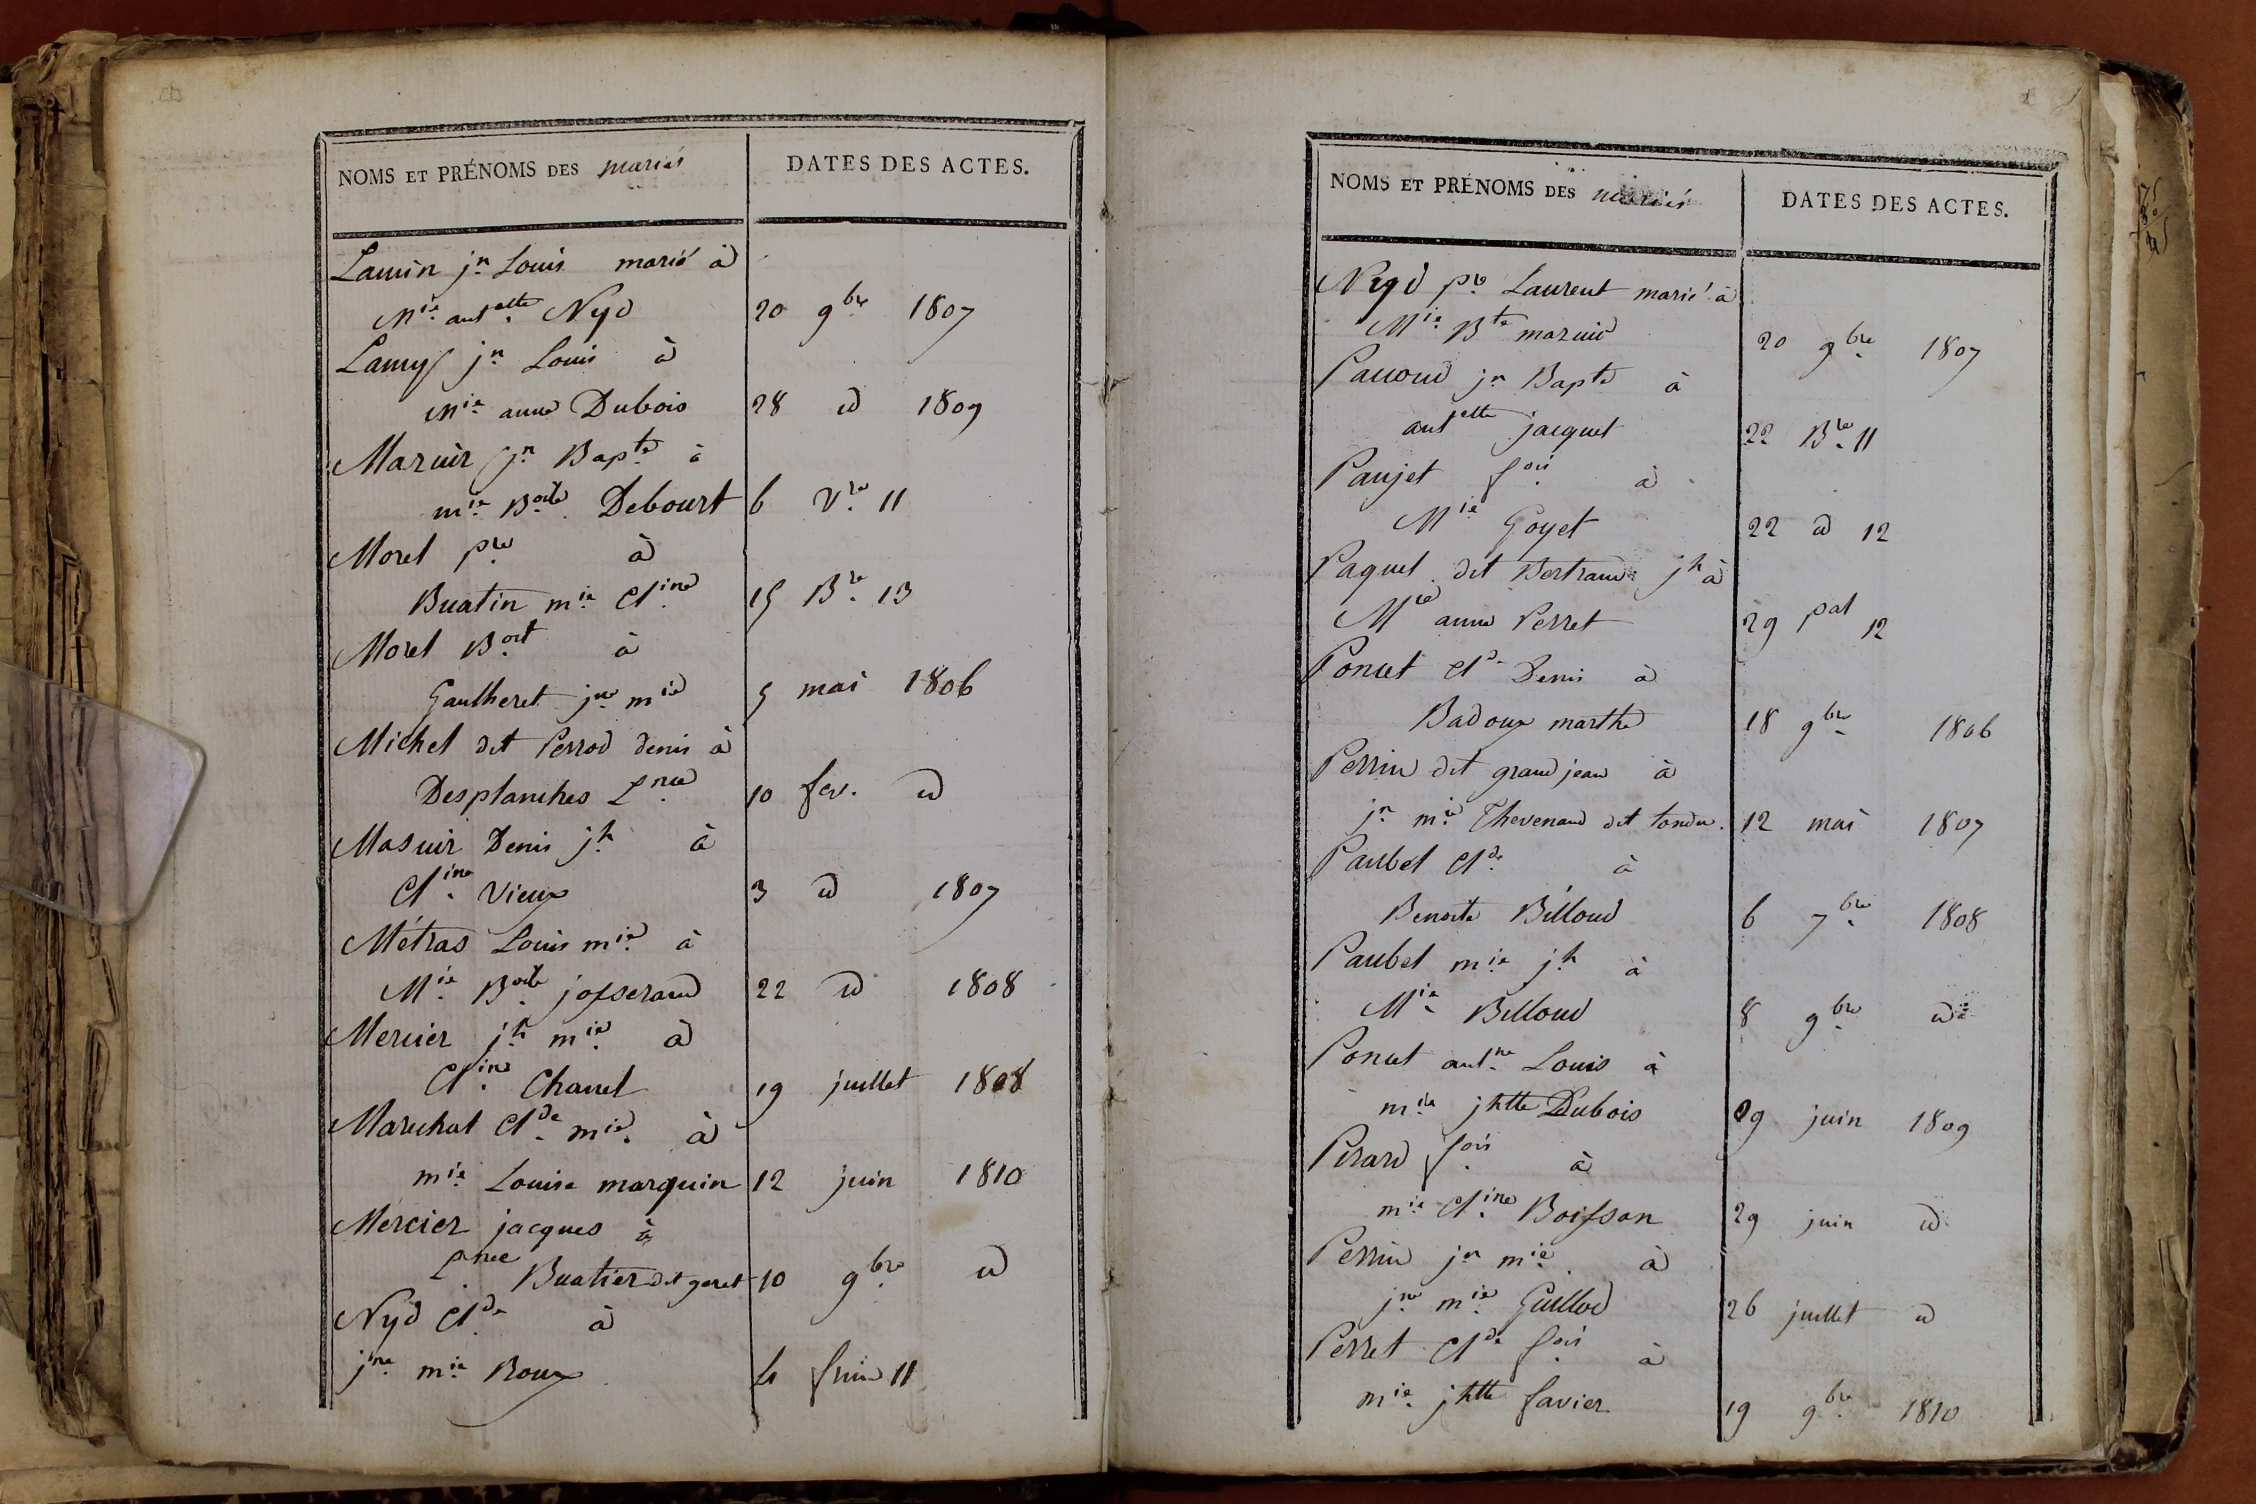 NOMS ET PRÉNOMS DES mariés
DATES DES ACTES.
Lamin jn Louis marié à
Mie antette Nyd 20 9bre 1807
Lamy jn Louis à
Mie anne Dubois 28 id 1809
Mazuir jn Bapte à
mie Bte Debourt 6 Vre 11
Morel pre à
Buatin mie Cline 15 Bre 13
Morel Bort à
Gaulheret jne mie 5 mai 1806
Michel dit Perrod denis à
Desplanches Lnce 10 fev. id
Masuir Denis jh à
Cline Vieux 3 id 1807
Métras Louis mie à
Mie Bte josserand 22 id 1808
Mercier jh mie à
Cline Chanel 19 juillet 1808
Marechal Clde mie à
mie Louise marquin 12 juin 1810
Mercier jacques à
Lnce Buatier dit goret 10 9bre id
Nyd Clde à
jne mie Roux 4 frim 11
NOMS ET PRÉNOMS DES mariés
DATES DES ACTES.
Nyd pre Laurent marié à
Mie Bte mazuir 20 9bre 1807
Pauoud jn Bapte à
antette jacquet 22 Bre 11
Panjet fois à
Mie Goyet 22 id 12
Paquet dit Bertrand jh à
Mie anne Perret 29 pal 12
Poncet Cld Denis à
Badoux marthe 18 9bre 1806
Perrin dit grand jean à
jn mie Thevenand dit tondu. 12 mai 1807
Paubel Clde à
Benoite Billoud 6 7bre 1808
Paubel mie jh à
Mie Billoud 8 9bre id
Poncet antne Louis à
mie jhtte Dubois 29 juin 1809
Pirard fois à
mie Cline Boisson 29 juin id
Perrin jn mie à
jne mie Guillod 26 juillet id
Perret Clde fois à
mie jhtte favier 19 9bre 1810